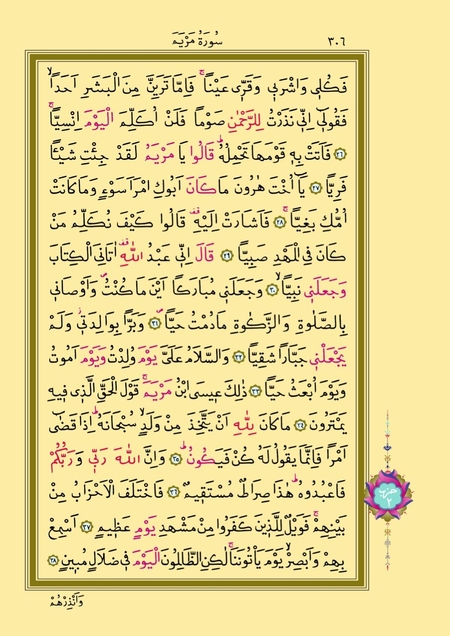 ٣٠٦ سُورَةُ مَرْيَمَ
فَكُلِي وَاشْرَبِي وَقَرِّي عَيْنًاۚ فَاِمَّا تَرَيِنَّ مِنَ الْبَشَرِ اَحَدًاۙ
فَقُولِي اِنِّي نَذَرْتُ لِلرَّحْمٰنِ صَوْمًا فَلَنْ اُكَلِّمَ الْيَوْمَ اِنْسِيًّاۚ
﴿٢٦﴾ فَاَتَتْ بِهِ قَوْمَهَا تَحْمِلُهُۜ قَالُوا يَا مَرْيَمُ لَقَدْ جِئْتِ شَيْئًا
فَرِيًّا ﴿٢٧﴾ يَٓا اُخْتَ هٰرُونَ مَا كَانَ اَبُوكِ امْرَاَ سَوْءٍ وَمَا كَانَتْ
اُمُّكِ بَغِيًّاۚ ﴿٢٨﴾ فَاَشَارَتْ اِلَيْهِۜ قَالُوا كَيْفَ نُكَلِّمُ مَنْ
كَانَ فِي الْمَهْدِ صَبِيًّا ﴿٢٩﴾ قَالَ اِنِّي عَبْدُ اللّٰهِۜ اٰتَانِيَ الْكِتَابَ
وَجَعَلَنِي نَبِيًّاۙ ﴿٣٠﴾ وَجَعَلَنِي مُبَارَكًا اَيْنَ مَا كُنْتُۖ وَاَوْصَانِي
بِالصَّلٰوةِ وَالزَّكٰوةِ مَا دُمْتُ حَيًّاۖ ﴿٣١﴾ وَبَرًّا بِوَالِدَتِيۘ وَلَمْ
يَجْعَلْنِي جَبَّارًا شَقِيًّا ﴿٣٢﴾ وَالسَّلَامُ عَلَيَّ يَوْمَ وُلِدْتُ وَيَوْمَ اَمُوتُ
وَيَوْمَ اُبْعَثُ حَيًّا ﴿٣٣﴾ ذٰلِكَ عِيسَى ابْنُ مَرْيَمَۚ قَوْلَ الْحَقِّ الَّذِي فِيهِ
يَمْتَرُونَ ﴿٣٤﴾ مَا كَانَ لِلّٰهِ اَنْ يَتَّخِذَ مِنْ وَلَدٍۙ سُبْحَانَهُۜ اِذَا قَضٰٓى
اَمْرًا فَاِنَّمَا يَقُولُ لَهُ كُنْ فَيَكُونُۜ ﴿٣٥﴾ وَاِنَّ اللّٰهَ رَبِّي وَرَبُّكُمْ
فَاعْبُدُوهُۜ هٰذَا صِرَاطٌ مُسْتَقِيمٌ ﴿٣٦﴾ فَاخْتَلَفَ الْاَحْزَابُ مِنْ
بَيْنِهِمْۚ فَوَيْلٌ لِلَّذِينَ كَفَرُوا مِنْ مَشْهَدِ يَوْمٍ عَظِيمٍ ﴿٣٧﴾ اَسْمِعْ
بِهِمْ وَاَبْصِرْۙ يَوْمَ يَأْتُونَنَاۚ لٰكِنِ الظَّالِمُونَ الْيَوْمَ فِي ضَلَالٍ مُبِينٍ ﴿٣٨﴾
وَاَنْذِرْهُمْ
حزب
٢